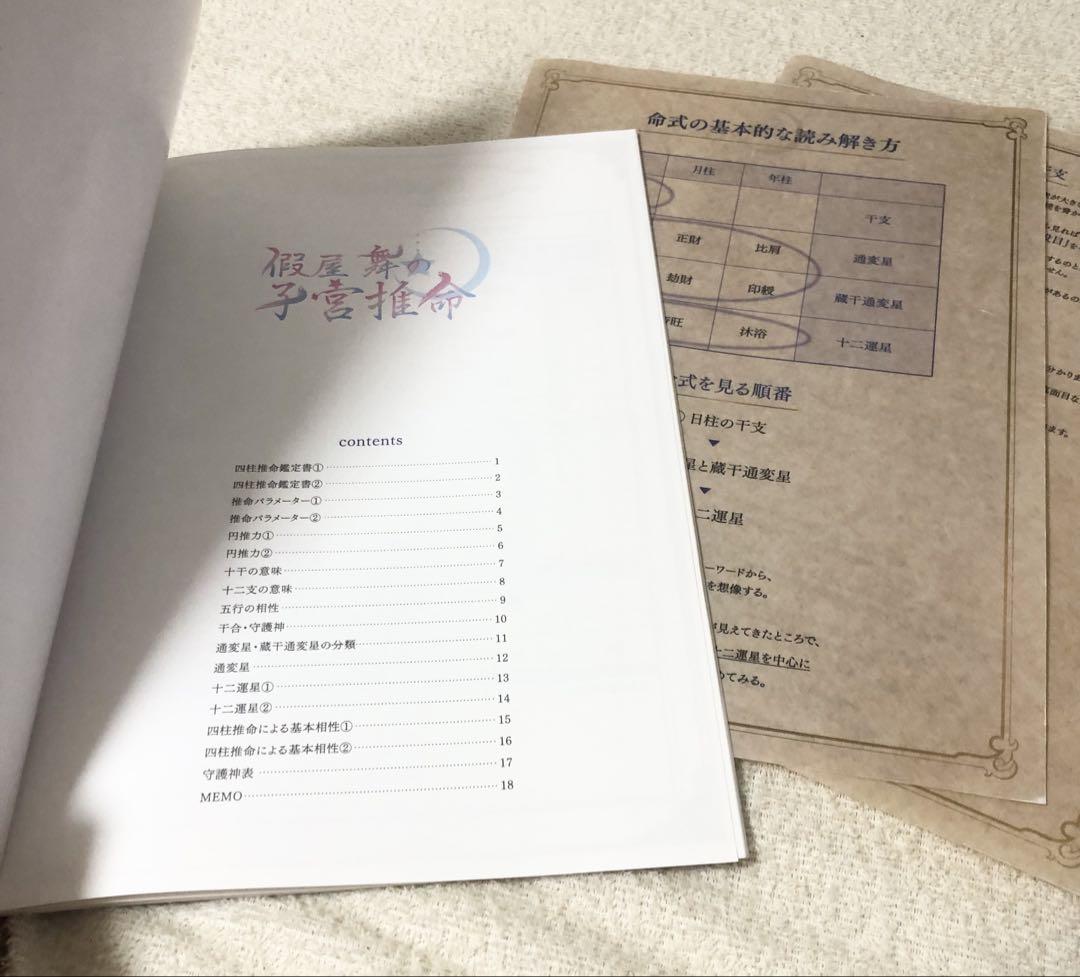 假屋舞の
子宮推命
contents
四柱推命鑑定書① 1
四柱推命鑑定書② 2
推命パラメーター① 3
推命パラメーター② 4
円推力① 5
円推力② 6
十干の意味 7
十二支の意味 8
五行の相性 9
干合・守護神 10
通変星・蔵干通変星の分類 11
通変星 12
十二運星① 13
十二運星② 14
四柱推命による基本相性① 15
四柱推命による基本相性② 16
守護神表 17
MEMO 18
命式の基本的な読み解き方
月柱 年柱
干支
正財 比肩 通変星
劫財 印綬 蔵干通変星
旺 沐浴 十二運星
式を見る順番
日柱の干支
星と蔵干通変星
二運星
ーワードから、
を想像する。
が見えてきたところで、
十二運星を中心に
てみる。
支
が大きい
見れば
役目」を
するのと
せん。
があるの
分かりま
真面目な
ます。